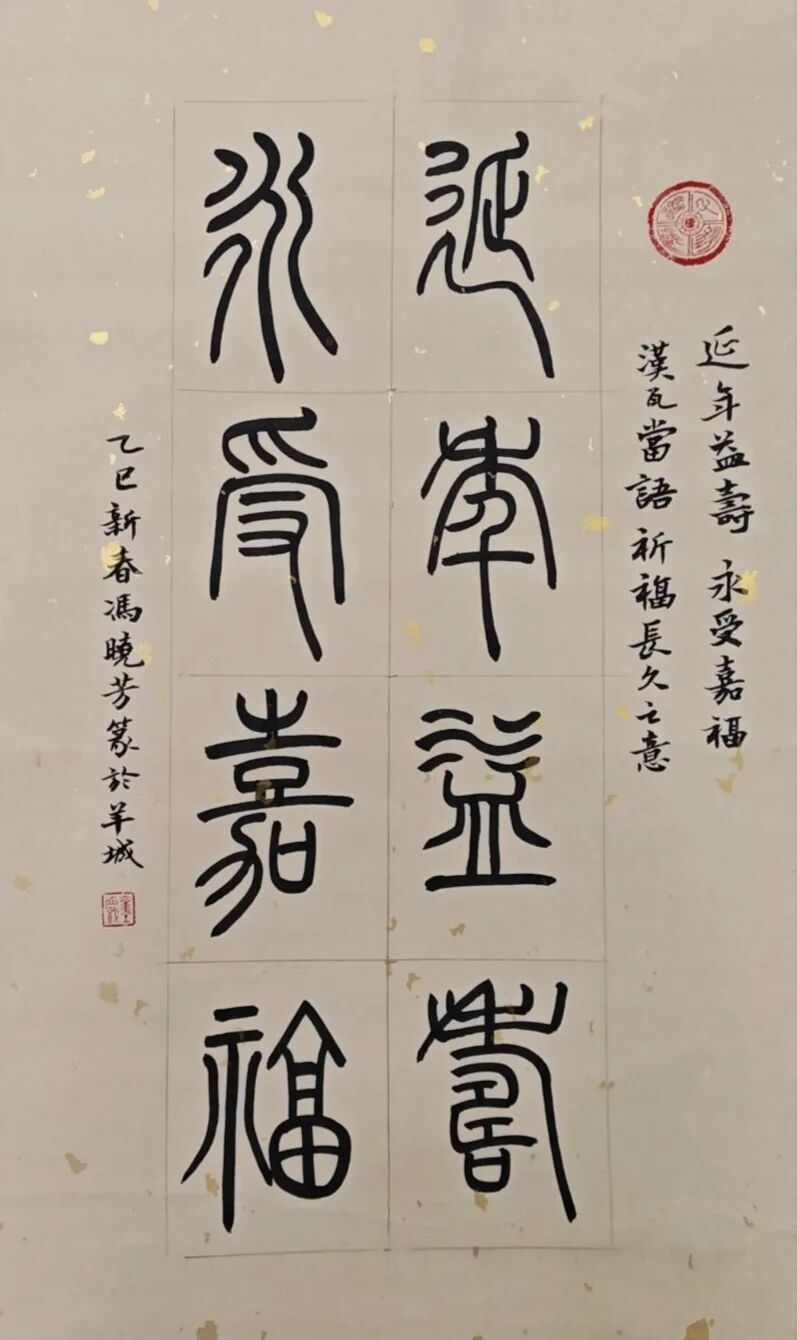 延年益壽 永受嘉福
漢瓦當語 祈福長久之意
延年益壽
永受嘉福
乙巳新春馮曉芳篆於羊城